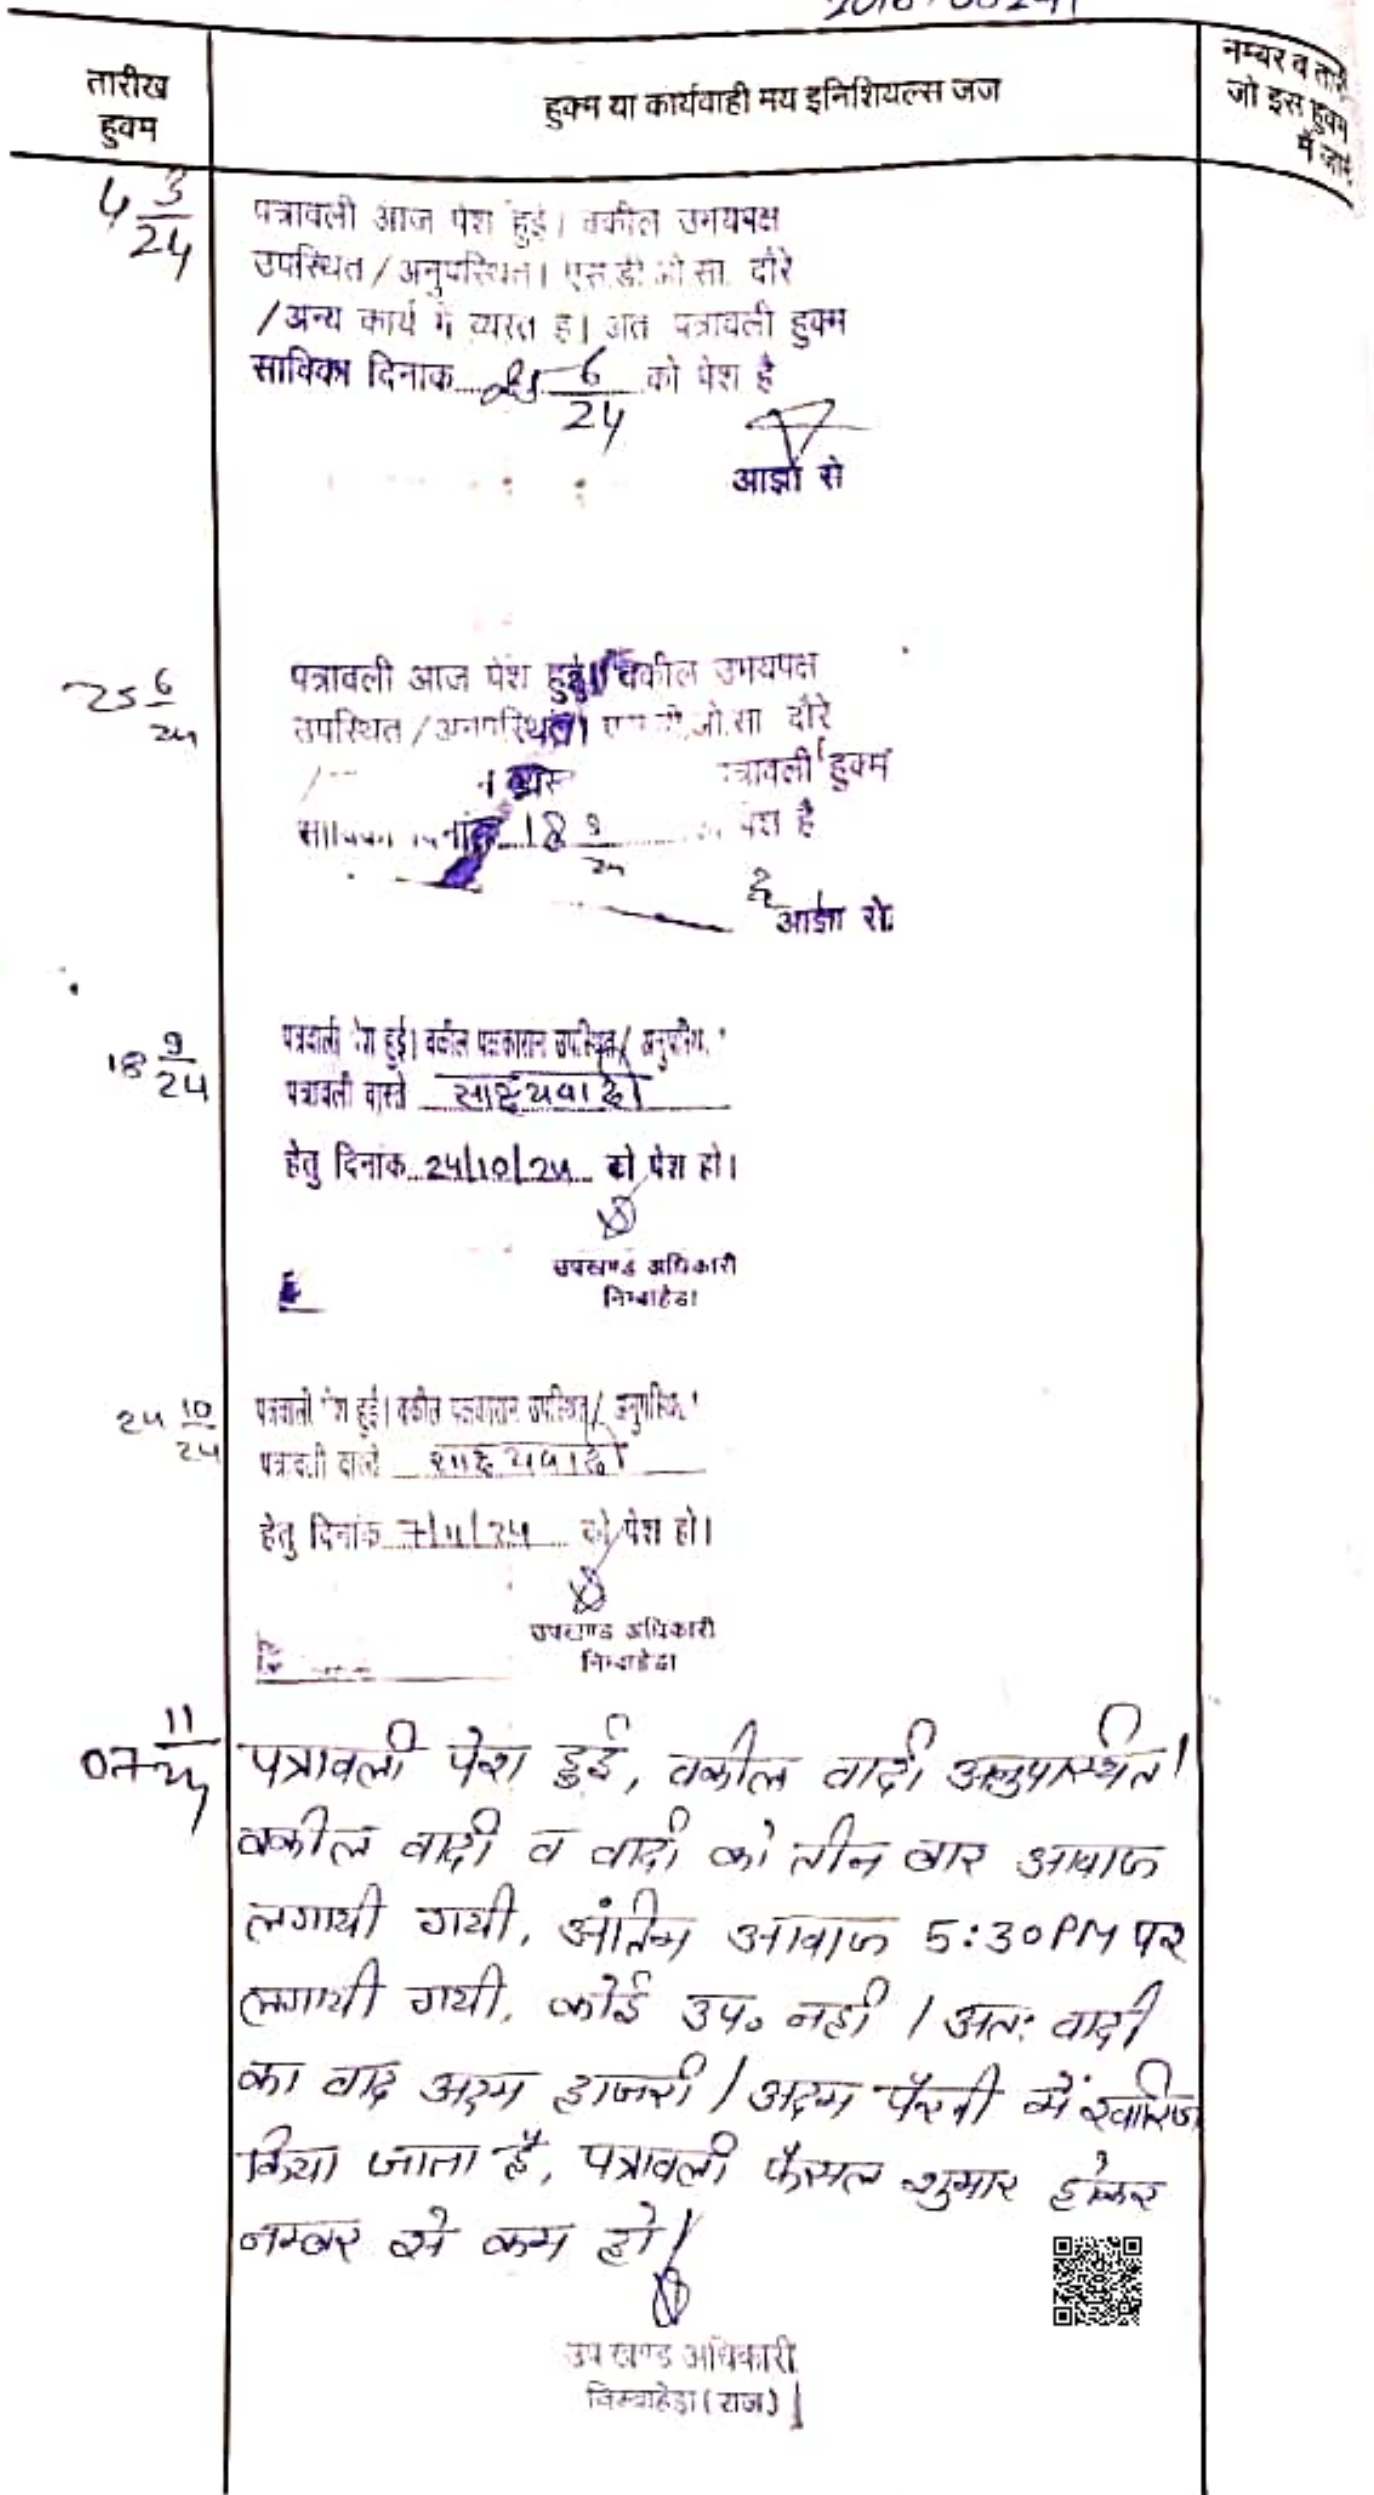 तारीख
हुक्म
हुक्म या कार्यवाही मय इनिशियल्स जज
नम्बर व
जो इस हुक्म
में
4 3/24
पत्रावली आज पेश हुई। वकील उभयपक्ष
उपस्थित / अनुपस्थित। एस.डी.ओ.सा. दौरे
/ अन्य कार्य में व्यस्त है। अत पत्रावली हुक्म
साविका दिनाक 25 6/24 को पेश है
आज्ञा से
25 6/24
पत्रावली आज पेश हुई। वकील उभयपक्ष
उपस्थित / अनुपस्थित। ओ.सा दौरे
हुक्म
18 9/24 पेश है
आज्ञा से
18 9/24
पत्रावली पेश हुई। वकील पक्षकारान उपस्थित /
पत्रावली वास्ते साक्ष्य वादी
हेतु दिनांक 24/10/24 को पेश हो।
उपखण्ड अधिकारी
निम्बाहेडा
24 10/24
पत्रावली पेश हुई। वकील पक्षकारान उपस्थित /
पत्रावली वास्ते साक्ष्य वादी
हेतु दिनांक 7/11/24 को पेश हो।
उपखण्ड अधिकारी
निम्बाहेडा
07 11/24
पत्रावली पेश हुई, वकील वादी अनुपस्थित।
वकील वादी व वादी को तीन बार आवाज
लगायी गयी, अंतिम आवाज 5:30 PM पर
लगायी गयी, कोई उप० नही / अतः वादी
का वाद अदम हाजरी / अदम पैरवी में खारिज
किया जाता है, पत्रावली फैसल शुमार होकर
नम्बर से कम हो।
उप खण्ड अधिकारी
निम्बाहेड़ा (राज)